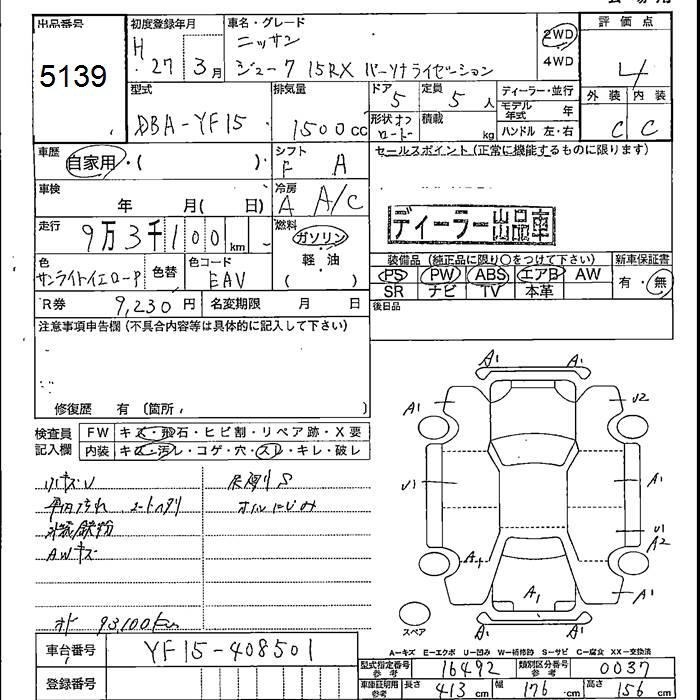 出品番号
5139
初度登録年月
H 27 3月
車名・グレード
ニッサン
ジューク 15RX パーソナライゼーション
2WD
4WD
評価点
4
外装 内装
C C
型式
DBA-YF15
排気量
1500cc
ドア 5
定員 5人
ディーラー・並行
モデル年式 年
形状
積載 kg
ハンドル 左・右
車歴
自家用・( )
シフト
F A
セールスポイント(正常に機能するものに限ります)
車検
年 月( 日)
冷房
A A/C
ディーラー出品車
走行
9万3千100km
燃料
ガソリン
軽・油
( )
色
サンライトイエローP
色替
色コード
EAV
装備品(純正品に限り○をつけて下さい)
PS PW ABS エアB AW
SR ナビ TV 本革
新車保証書
有・無
R券 9,230円
名変期限 月 日
後日品
注意事項申告欄(不具合内容等は具体的に記入して下さい)
修復歴 有(箇所, )
検査員記入欄
FW キズ・飛石・ヒビ割・リペア跡・X要
内装 キズ・汚レ・コゲ・穴・スレ・キレ・破レ
小キズU
AWキズ
オイルにじみ
93,100km
A1 A1
A1 U2
U1 A1
U1
A2
A1
A1 A1
スペア
A=キズ E=エクボ U=凹み W=補修跡 S=サビ C=腐食 XX=交換済
車台番号 YF15-408501
登録番号
型式指定番号 参考 16492
類別区分番号 参考 0037
車庫証明用 参考 長さ 413cm 幅 176cm 高さ 156cm